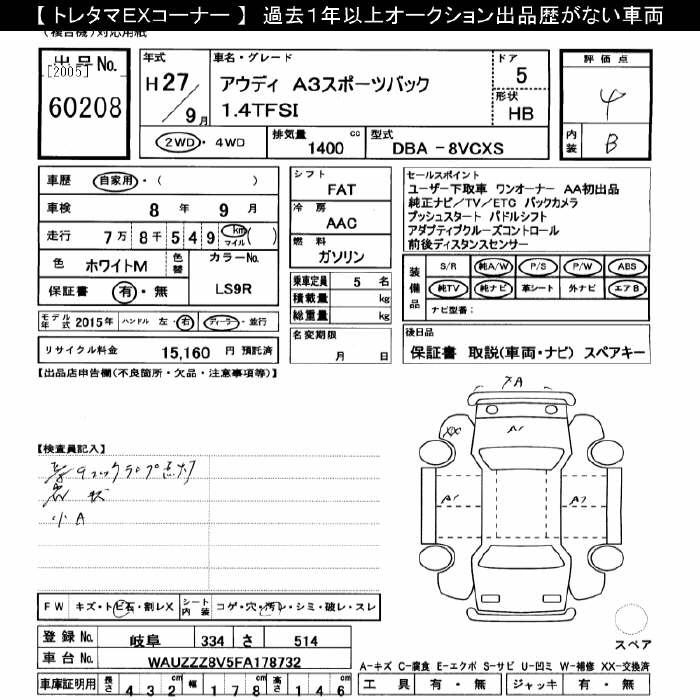 【 トレタマEXコーナー 】 過去1年以上オークション出品歴がない車両
(複合機)対応用紙
出品No.
[2005]
60208
年式
H27/9月
車名・グレード
アウディ A3スポーツバック
1.4TFSI
ドア
5
形状
HB
評価点
4
内装
B
2WD・4WD
排気量
1400 cc
型式
DBA - 8VCXS
車歴 自家用・( )
車検 8年 9月
走行 7万 8千 5 4 9 km マイル ( )
色 ホワイトM 色替 カラーNo.
保証書 有・無 LS9R
シフト
FAT
冷房
AAC
燃料
ガソリン
乗車定員 5 名
積載量 kg
総重量 kg
名変期限
月 日
セールスポイント
ユーザー下取車 ワンオーナー AA初出品
純正ナビ/TV/ETG バックカメラ
プッシュスタート パドルシフト
アダプティブクルーズコントロール
前後ディスタンスセンサー
装備品
S/R 純A/W P/S P/W ABS
純TV 純ナビ 革シート 外ナビ エアB
ナビ型番:
後日品
保証書 取説(車両・ナビ) スペアキー
モデル年式 2015年 ハンドル 左・右 ディーラー・並行
リサイクル料金 15,160 円 預託済
【出品店申告欄(不良箇所・欠品・注意事項等)】
【検査員記入】
チェックランプ点灯
小A
XA
XX
A1
A1
A2
FW キズ・トビ石・割レX シート内装 コゲ・穴・汚レ・シミ・破レ・スレ
登録No. 岐阜 334 さ 514
車台No. WAUZZZ8V5FA178732
車庫証明用 長さ 4 3 2 cm 幅 1 7 8 cm 高さ 1 4 6 cm
スペア
A-キズ C-腐食 E-エクボ S-サビ U-凹ミ W-補修 XX-交換済
工具 有・無 ジャッキ 有・無